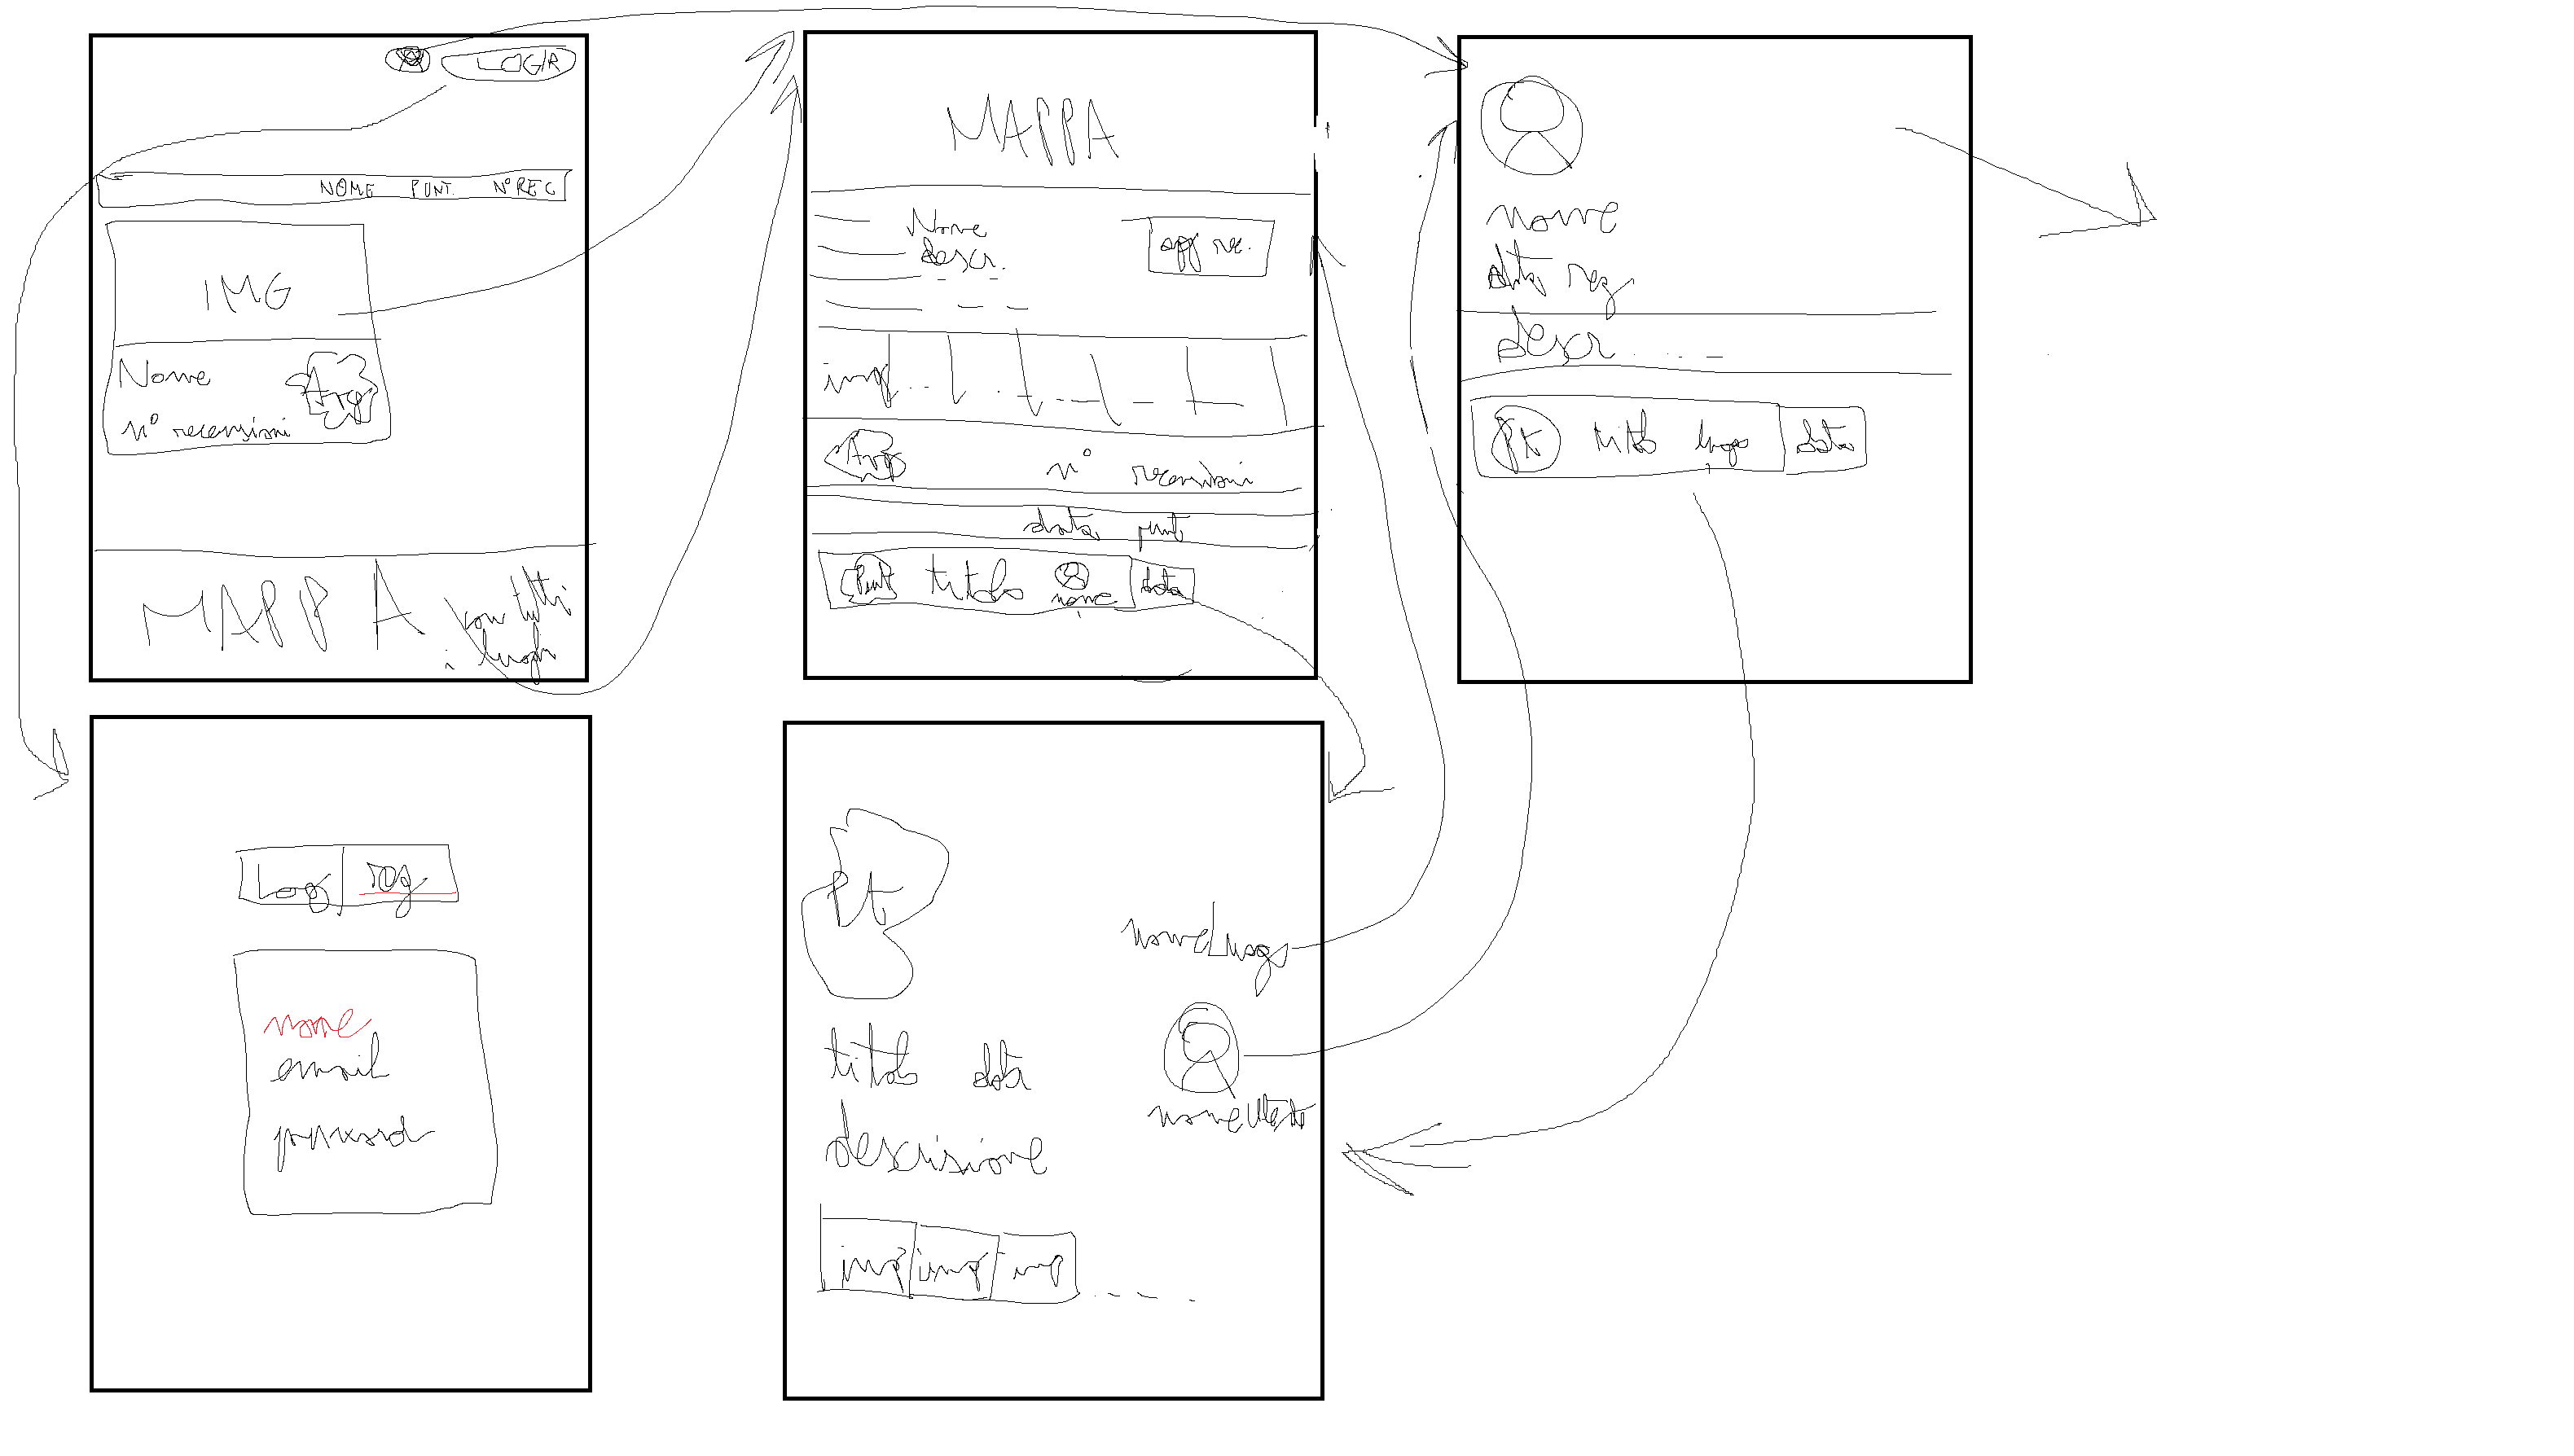 LOG/R
NOME PUNT. N° REC
IMG
Nome
Avg
n° recensioni
MAPPA con tutti
i luoghi
MAPPA
Nome
descr.
agg rec.
img...
Avg n° recensioni
data punt
Punt titolo nome data
nome
data reg
descr....
pt titolo luogo data
Log reg
nome
email
password
Pt
nomeLuogo
titolo data
nomeUtente
descrisione
img img img ....